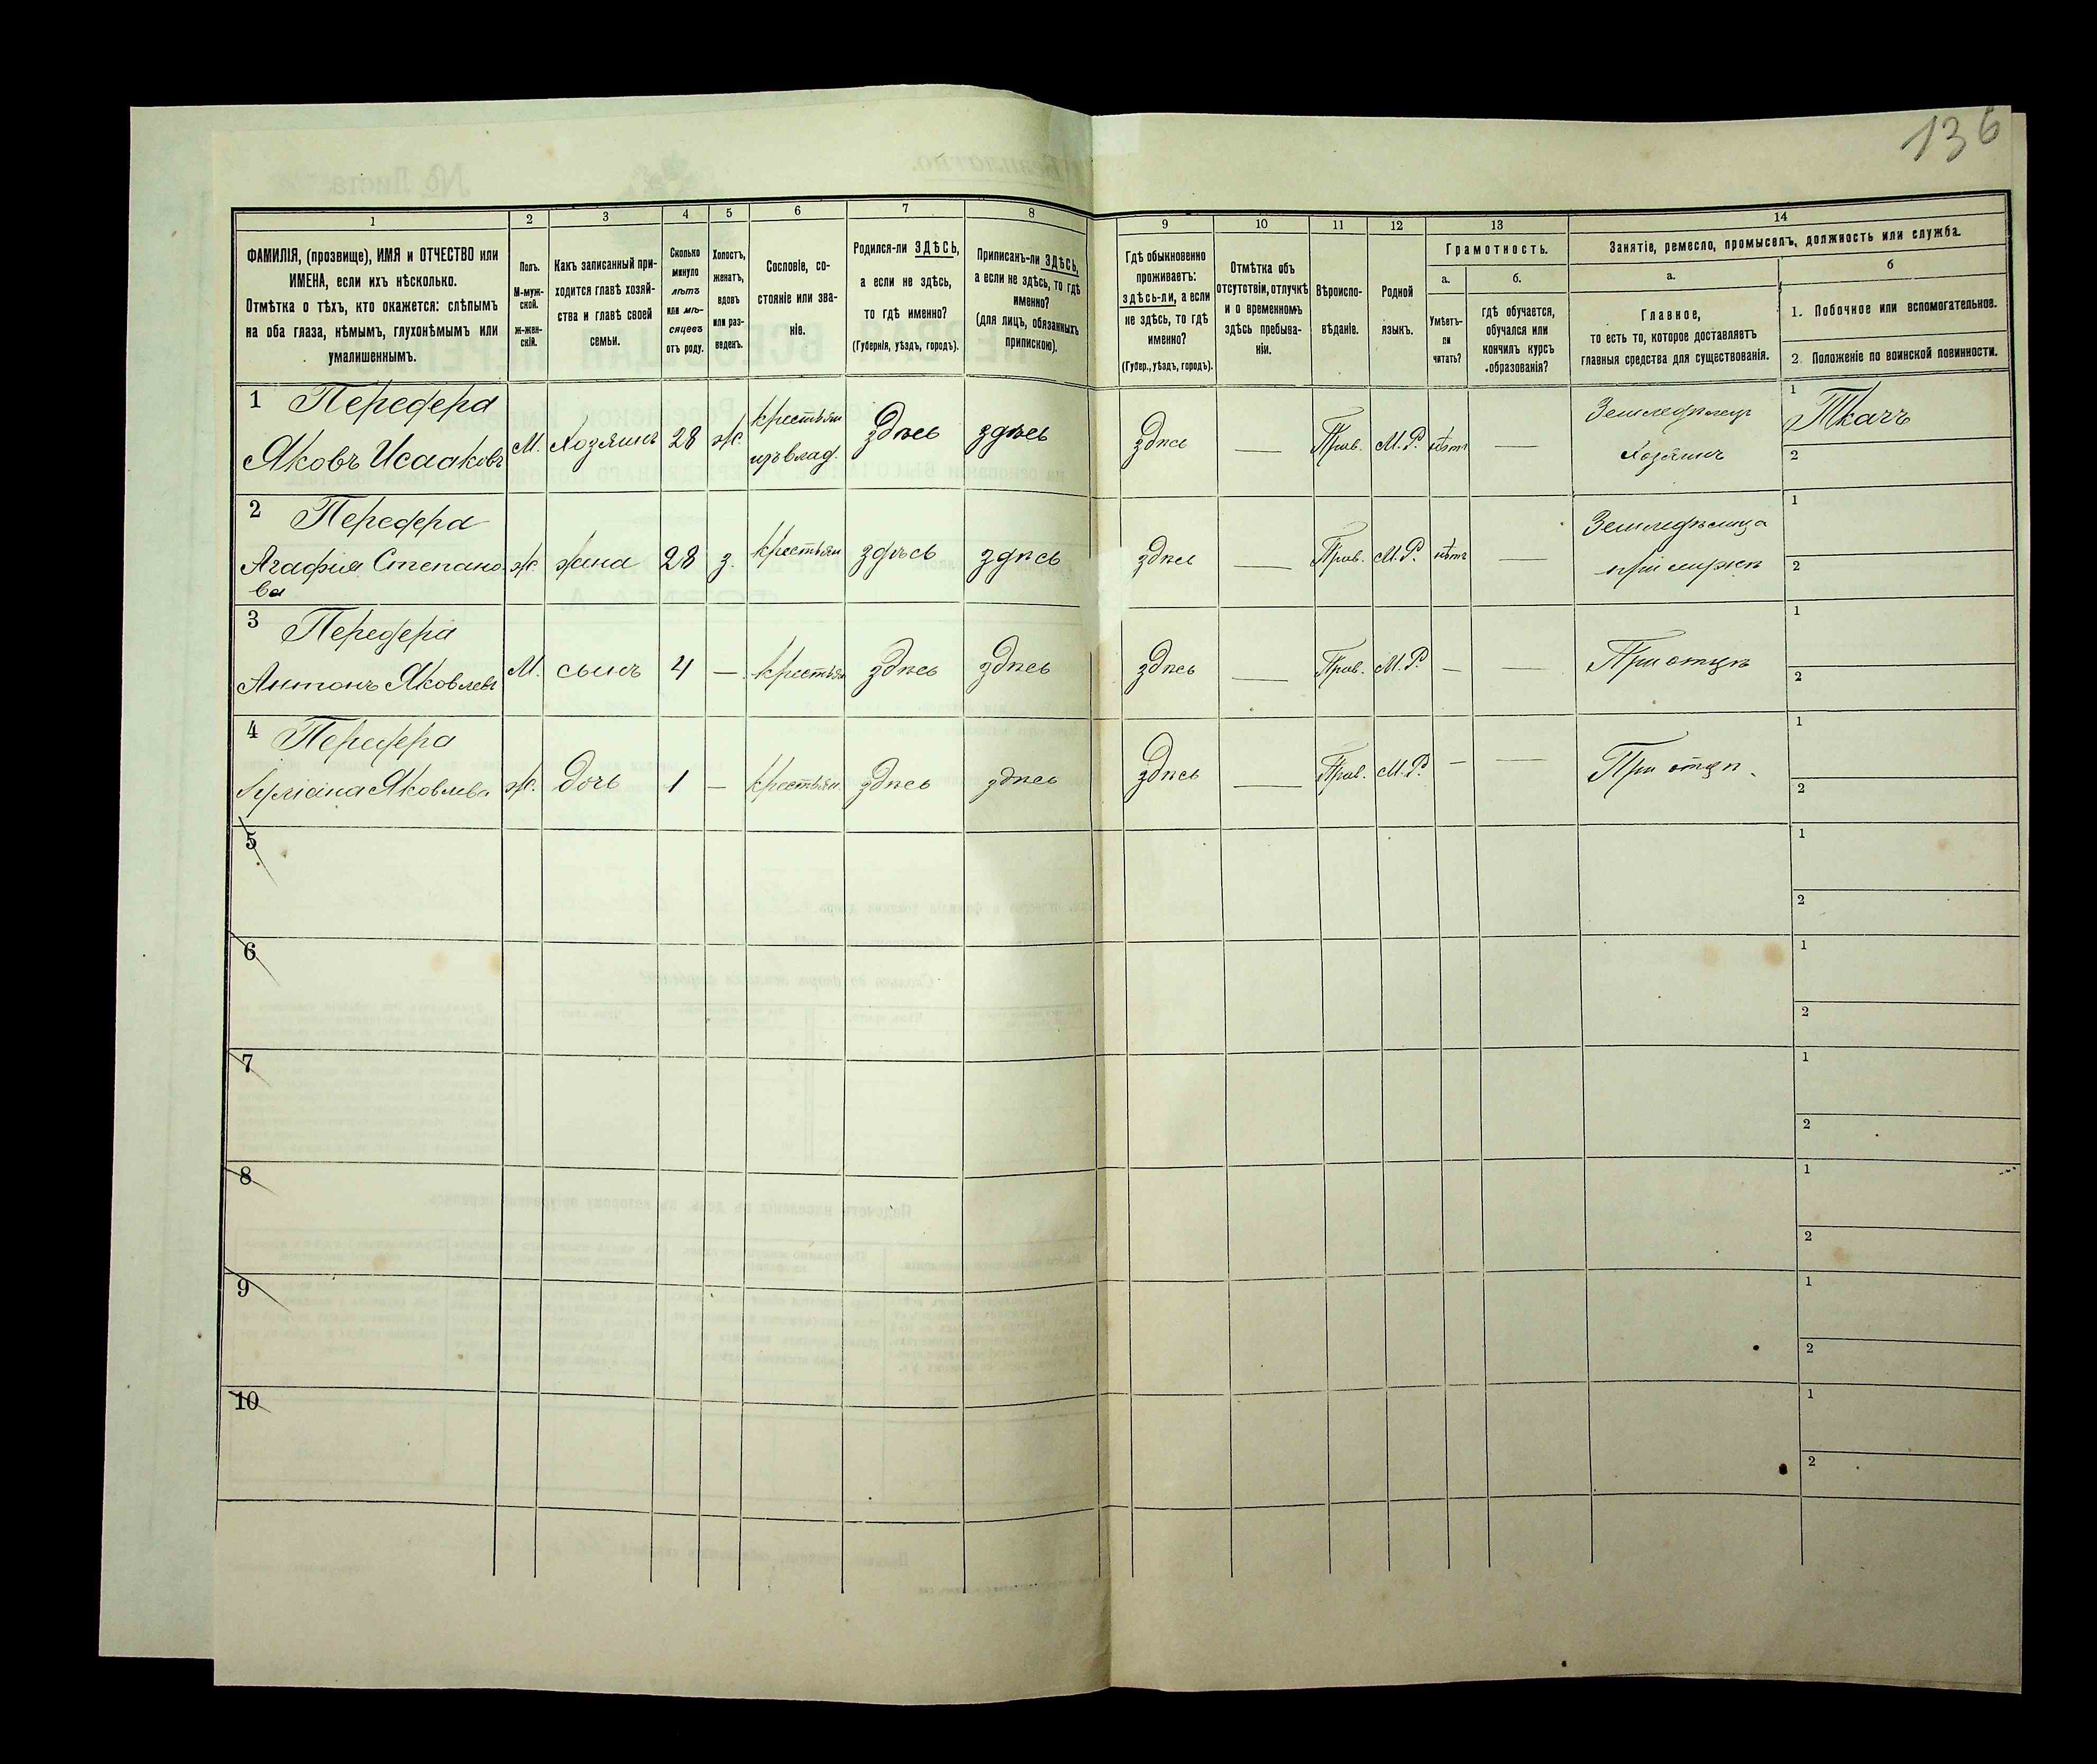 136
1 2 3 4 5 6 7 8 9 10 11 12 13 14
ФАМИЛІЯ, (прозвище), ИМЯ и ОТЧЕСТВО или ИМЕНА, если ихъ нѣсколько.
Отмѣтка о тѣхъ, кто окажется: слѣпымъ на оба глаза, нѣмымъ, глухонѣмымъ или умалишеннымъ.
Полъ. М-мужской. ж-женскій.
Какъ записанный приходится главѣ хозяйства и главѣ своей семьи.
Сколько минуло лѣтъ или мѣсяцевъ отъ роду.
Холостъ, женатъ, вдовъ или разведенъ.
Сословіе, состояніе или званіе.
Родился-ли ЗДѢСЬ, а если не здѣсь, то гдѣ именно? (Губернія, уѣздъ, городъ).
Приписанъ-ли ЗДѢСЬ, а если не здѣсь, то гдѣ именно? (для лицъ, обязанныхъ припискою).
Гдѣ обыкновенно проживаетъ: здѣсь-ли, а если не здѣсь, то гдѣ именно? (Губер., уѣздъ, городъ).
Отмѣтка объ отсутствіи, отлучкѣ и о временномъ здѣсь пребываніи.
Вѣроисповѣданіе.
Родной языкъ.
Грамотность.
а. Умѣетъ-ли читать?
б. гдѣ обучается, обучался или кончилъ курсъ образованія?
Занятіе, ремесло, промыселъ, должность или служба.
а. Главное, то есть то, которое доставляетъ главныя средства для существованія.
б 1. Побочное или вспомогательное.
2. Положеніе по воинской повинности.
1 Передера
Яковъ Исааковъ М. Хозяинъ 28 ж. крестьян изъ влад. здѣсь здѣсь здѣсь — Прав. М.Р. нѣтъ — Земледѣлецъ Хозяинъ 1 Ткачъ
2
2 Передера
Агафія Степанова ж. жена 28 з. крестьян здѣсь здѣсь здѣсь — Прав. М.Р. нѣтъ — Земледѣлица при мужѣ 1
2
3 Передера
Антонъ Яковлевъ М. сынъ 4 — крестьян здѣсь здѣсь здѣсь — Прав. М.Р. — — При отцѣ 1
2
4 Передера
Яковлева ж. дочь 1 — крестьян. здѣсь здѣсь здѣсь — Прав. М.Р. — — При отцѣ 1
2
5 1
2
6 1
2
7 1
2
8 1
2
9 1
2
10 1
2